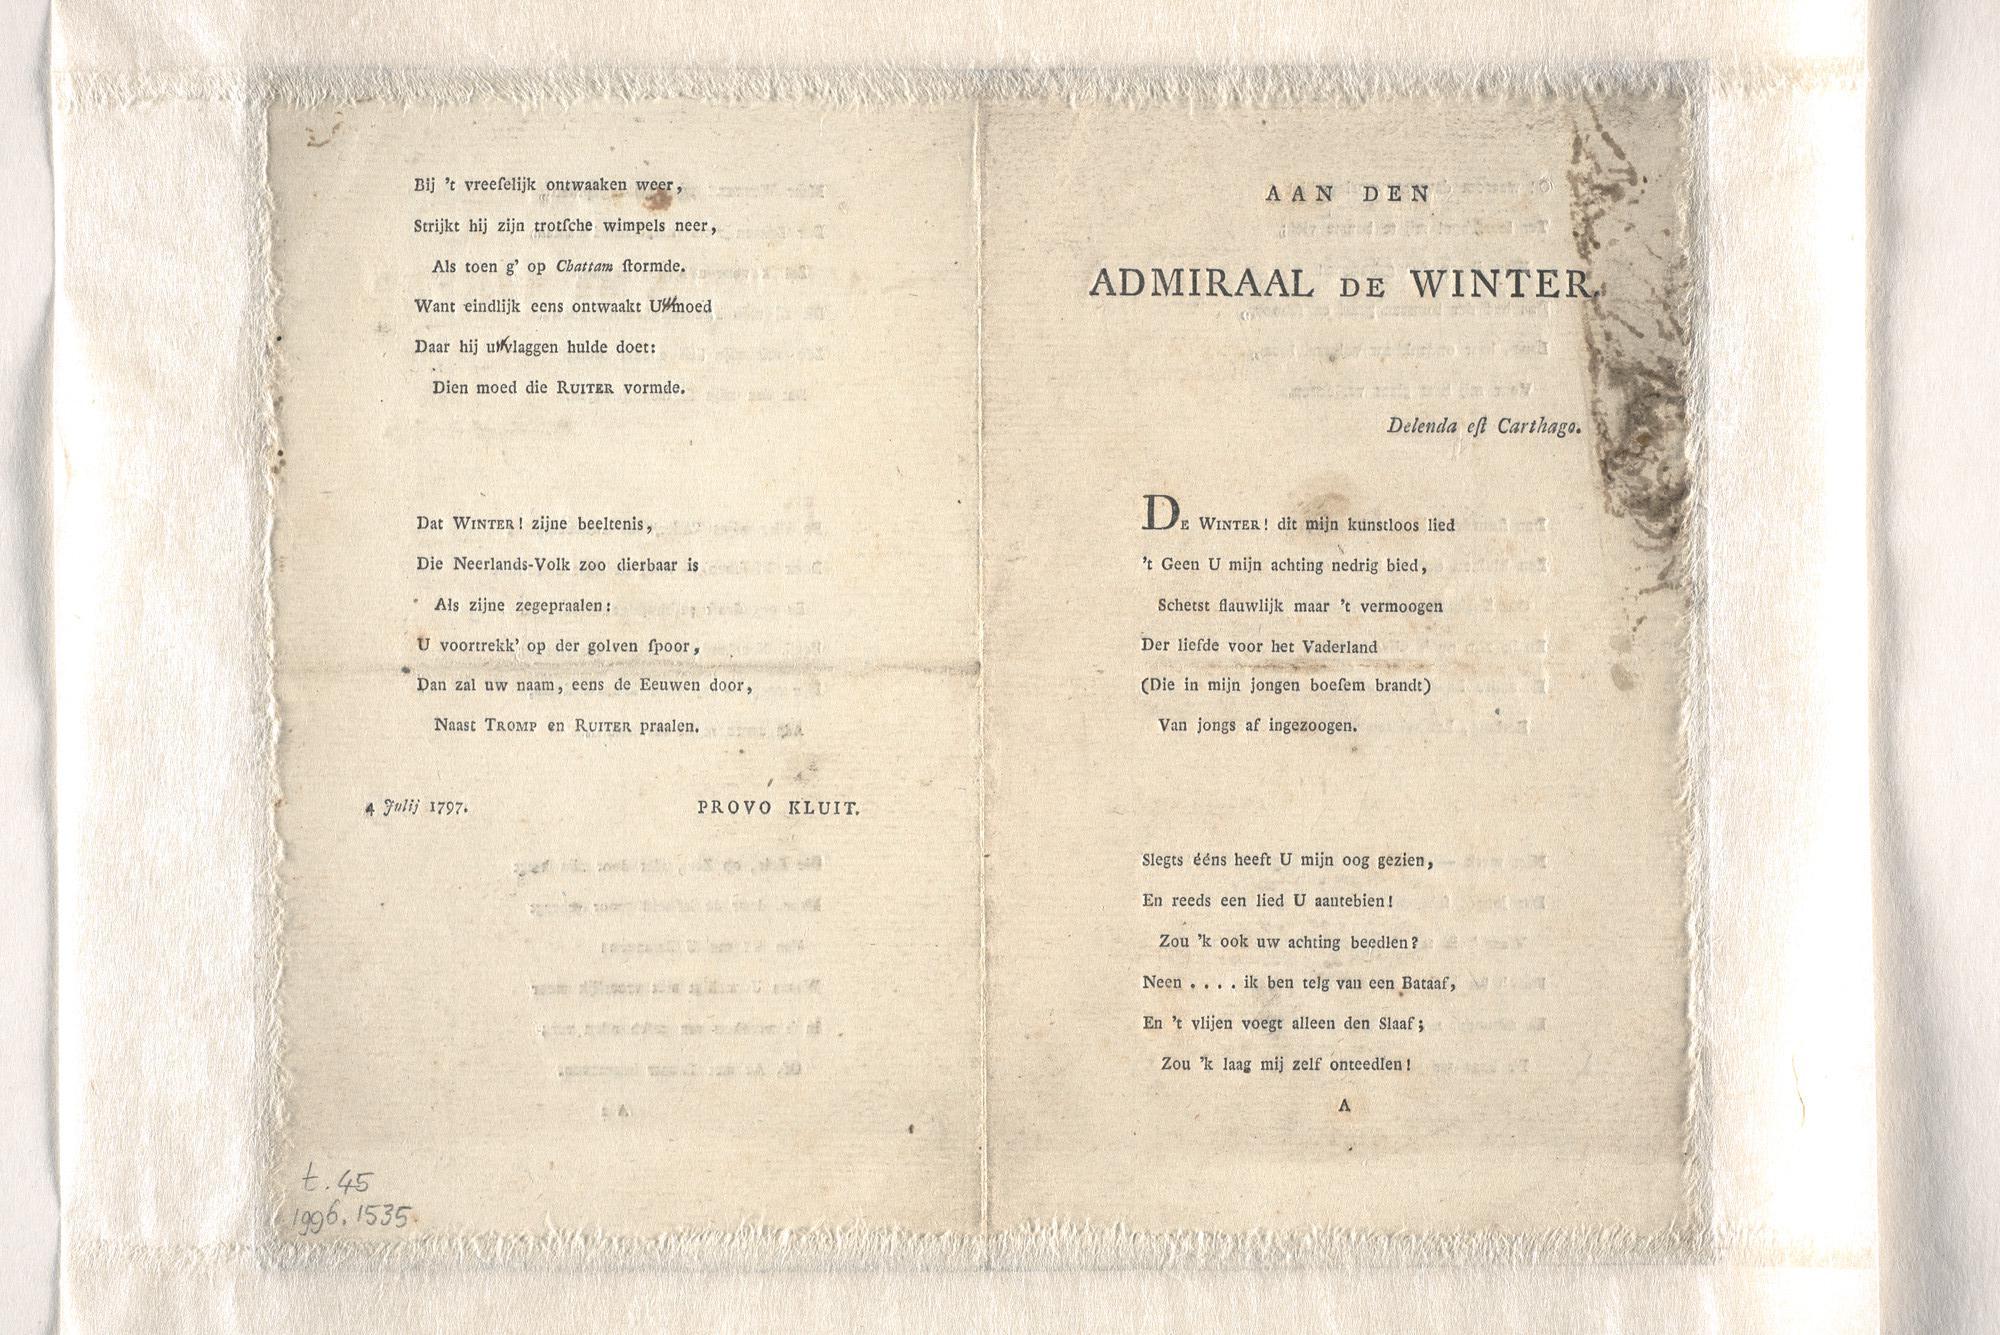 Bij 't vreeſelijk ontwaaken weer,
Strijkt hij zijn trotſche wimpels neer,
Als toen g' op Chattam ſtormde.
Want eindlijk eens ontwaakt U moed
Daar hij u vlaggen hulde doet:
Dien moed die RUITER vormde.
Dat WINTER! zijne beeltenis,
Die Neerlands-Volk zoo dierbaar is
Als zijne zegepraalen:
U voortrekk' op der golven ſpoor,
Dan zal uw naam, eens de Eeuwen door,
Naast TROMP en RUITER praalen.
4 Julij 1797. PROVO KLUIT.
t. 45
1996.1535
AAN DEN
ADMIRAAL DE WINTER.
Delenda eſt Carthago.
DE WINTER! dit mijn kunstloos lied
't Geen U mijn achting nedrig bied,
Schetst flauwlijk maar 't vermoogen
Der liefde voor het Vaderland
(Die in mijn jongen boeſem brandt)
Van jongs af ingezoogen.
Slegts ééns heeft U mijn oog gezien,
En reeds een lied U aantebien!
Zou 'k ook uw achting beedlen?
Neen . . . . ik ben telg van een Bataaf,
En 't vlijen voegt alleen den Slaaf;
Zou 'k laag mij zelf onteedlen!
A